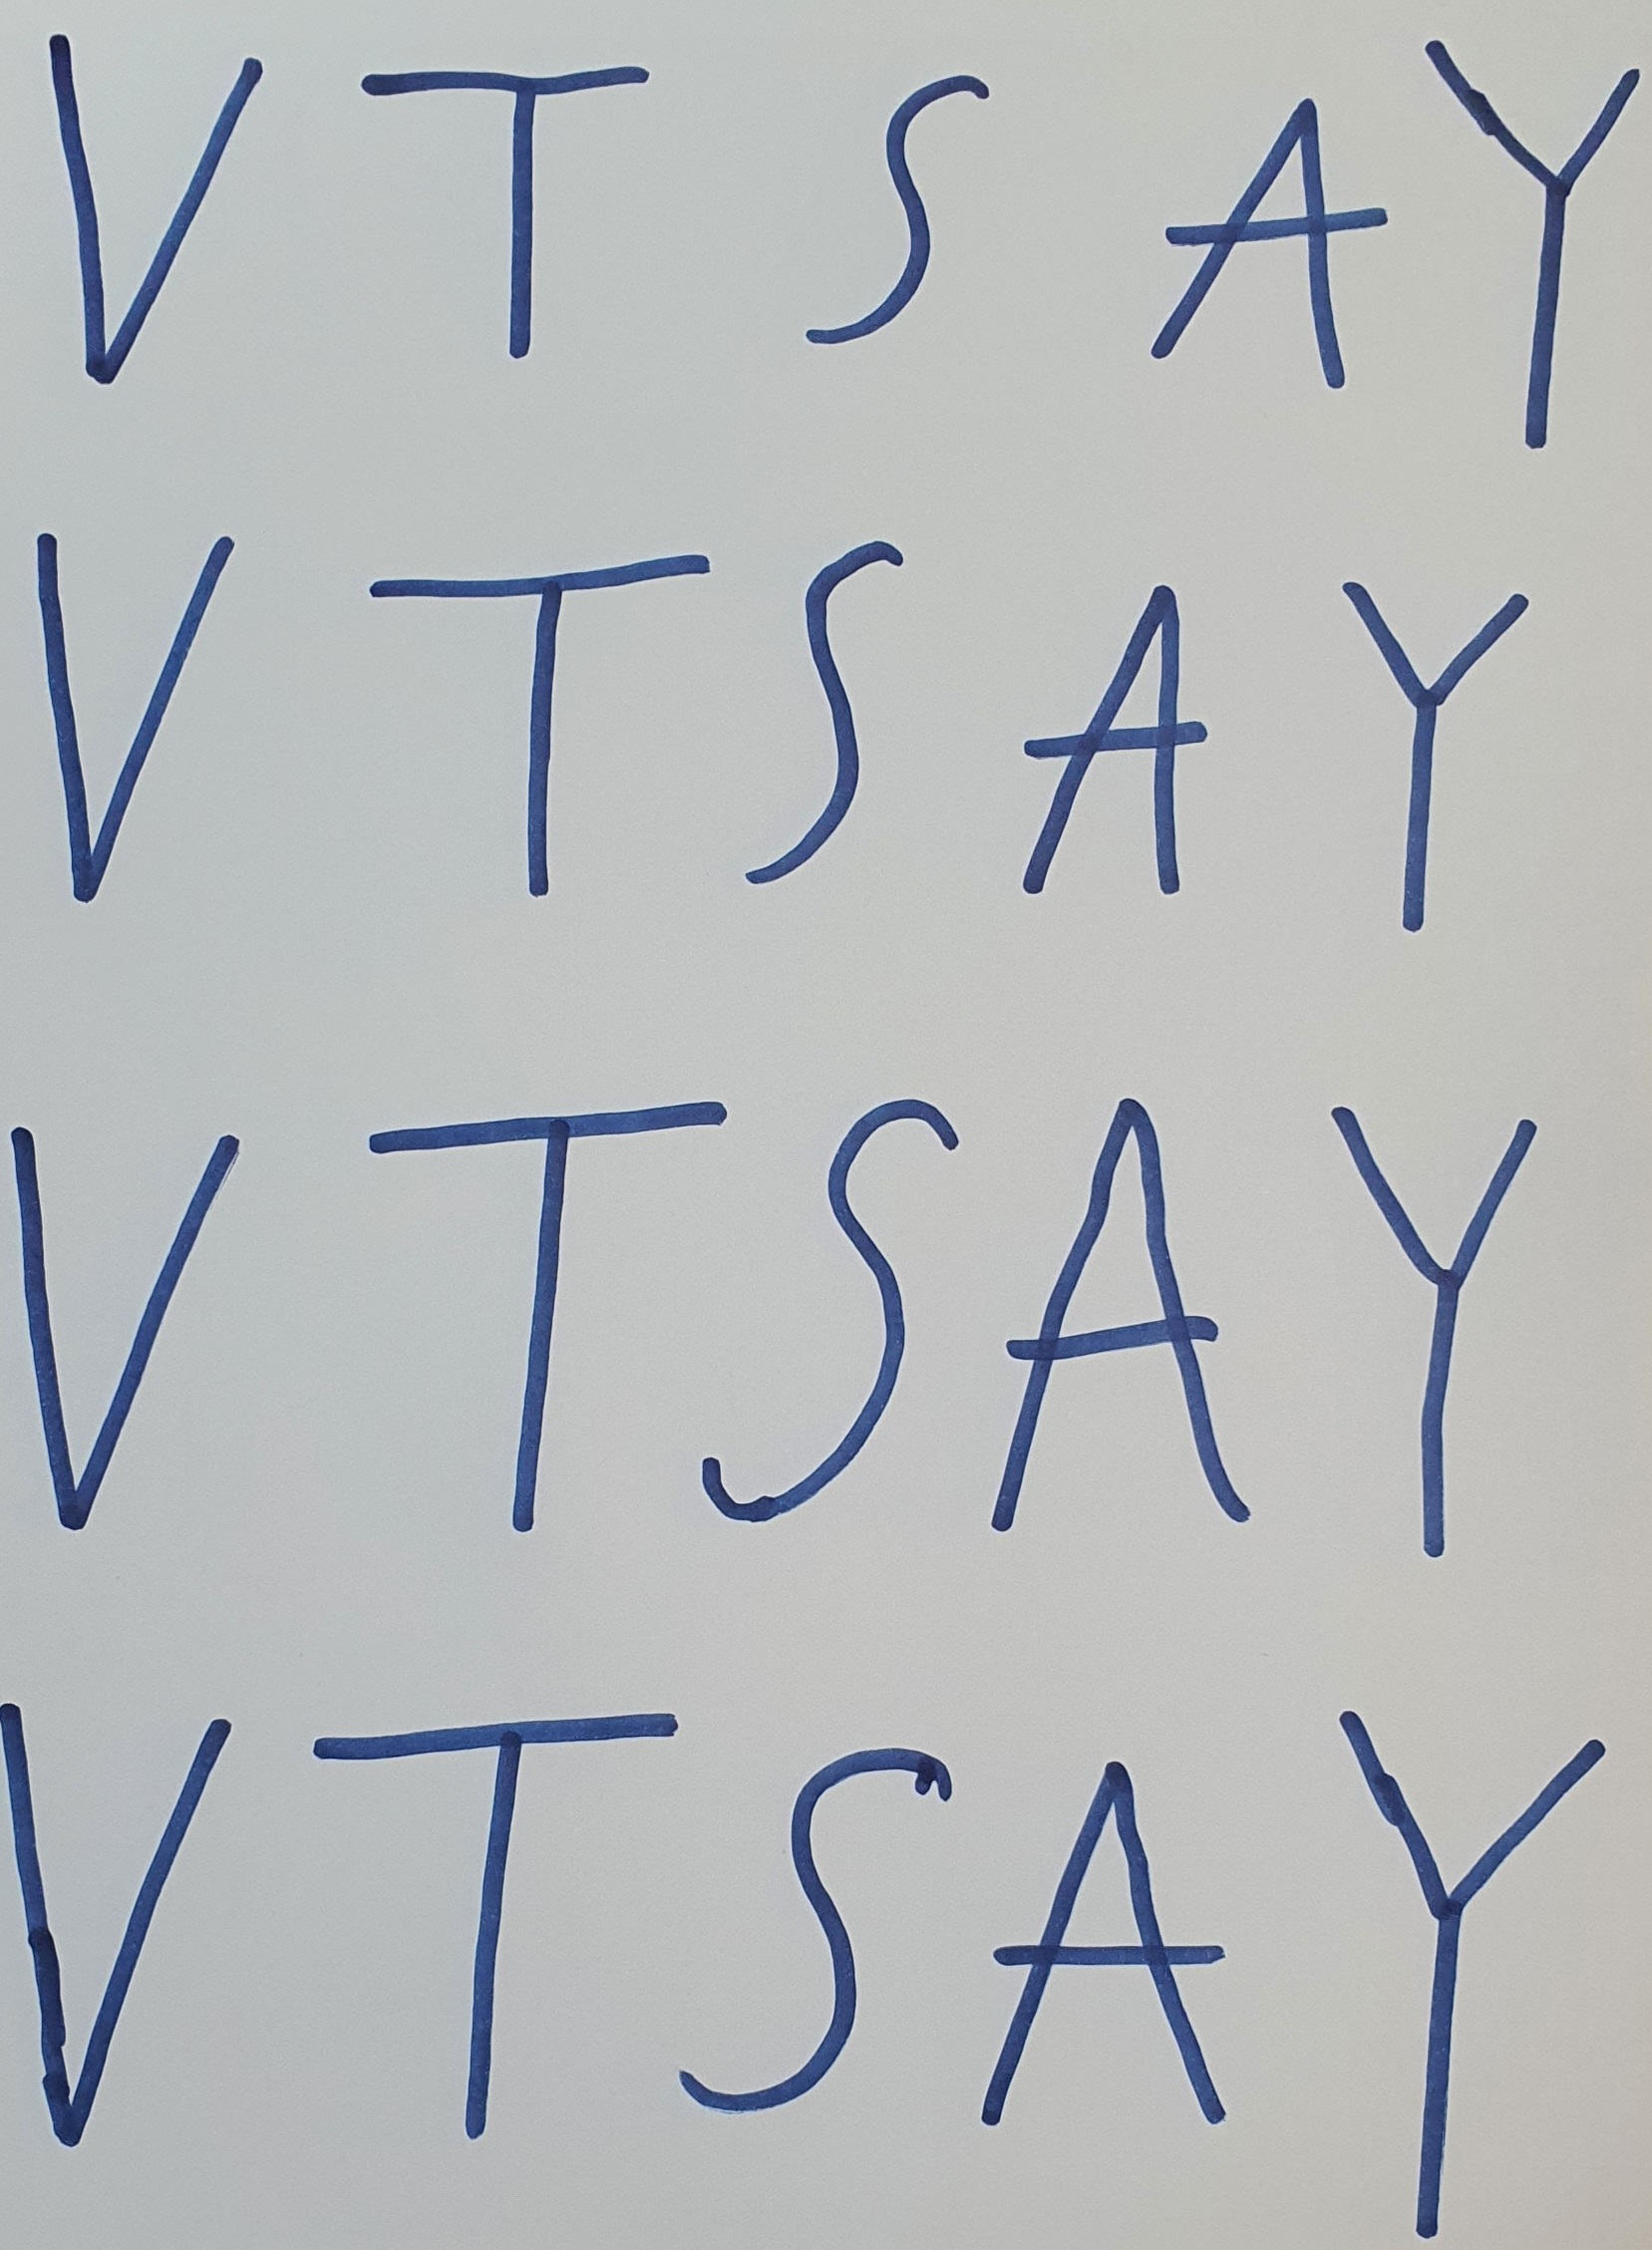 V T S A Y
V T S A Y
V T S A Y
V T S A Y